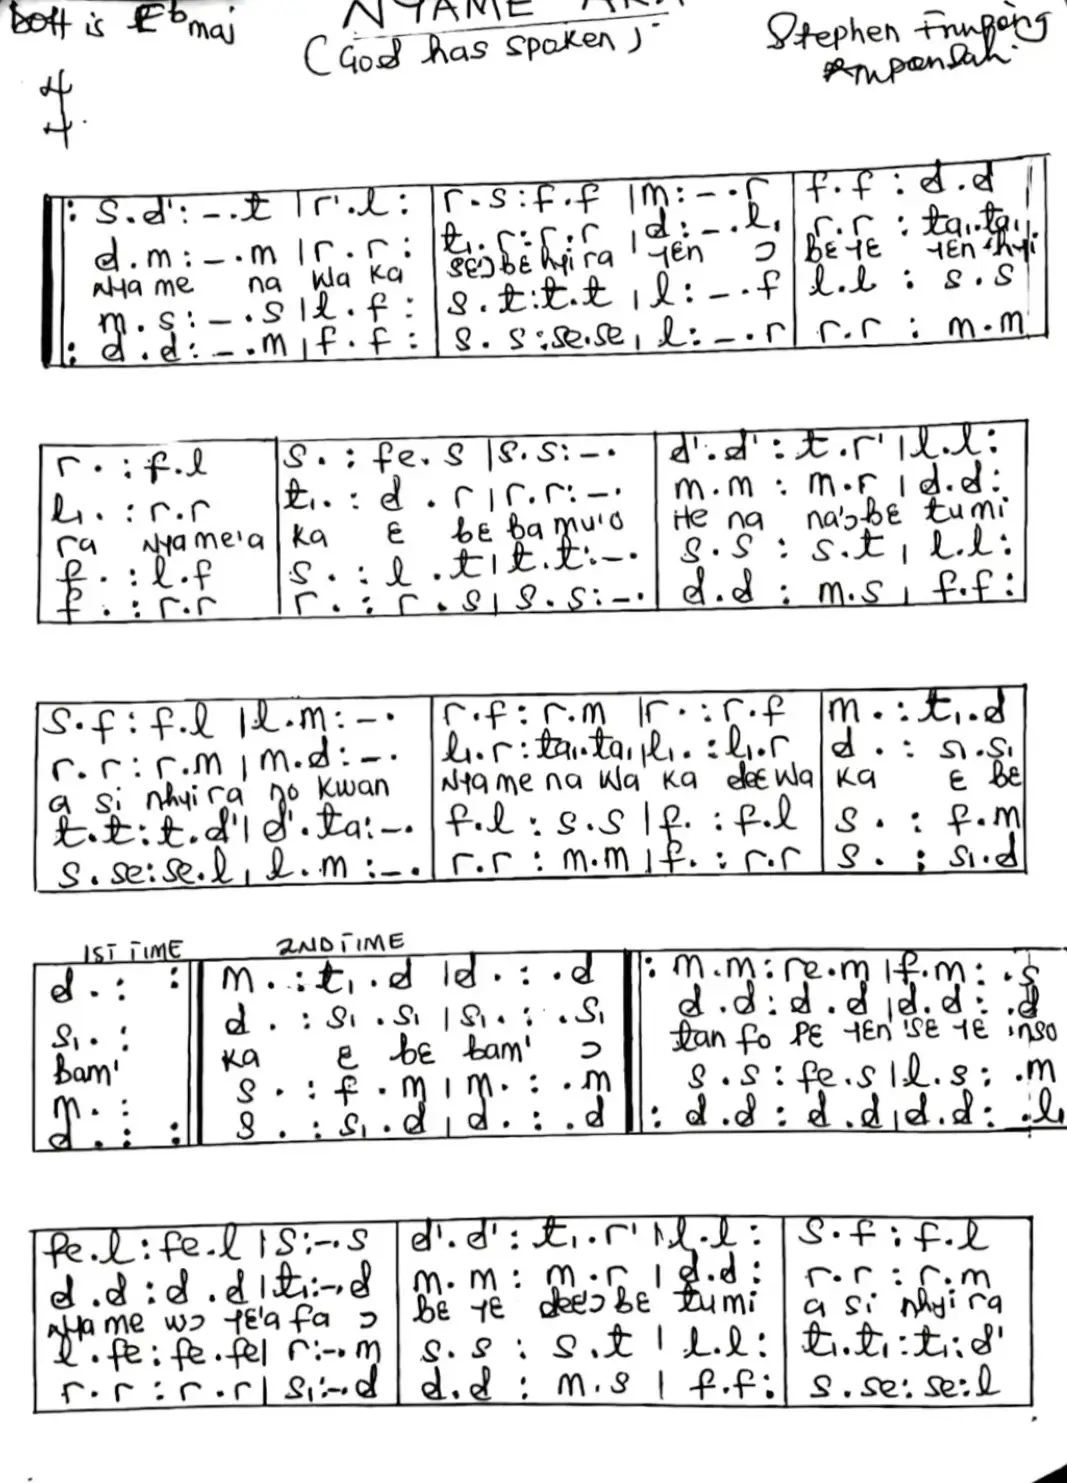 Doh is Eb maj
NYAME AKA
(God has spoken)
Stephen Frimpong
Ampansah.
4
4.
: s.d':-.t |r'.l: | r.s:f.f |m:-.r | f.f : d.d
d.m:-.m |r.r: | t₁.r:r.r |d:-.l₁ | r.r : ta₁.ta₁
Nyame na wa ka | SEƆ bE hyi ra YEN Ɔ | BE YE YEN nhyi
m.s:-.s |l.f : | s.t:t.t | l:-.f | l.l : s.s
: d.d:-.m | f.f: | s.s:se.se | l:-.r | r.r : m.m
r. : f.l | s. : fe.s |s.s:-. | d'.d' : t.r' |l.l:
l₁. : r.r | t₁. : d .r | r.r:-. | m.m : m.r | d.d:
ra Nyame'a | Ka Ɛ bE ba mu'o | He na na'ɔbE tumi
f. : l.f | s. : l .t | t.t:-. | s.s : s.t | l.l:
f. : r.r | r. : r.s | s.s:-. | d.d : m.s | f.f:
s.f : f.l |l.m:-. | r.f : r.m |r. : r.f | m. : t₁.d
r.r : r.m | m.d:-. | l₁.r : ta₁.ta₁ |l₁. : l₁.r | d. : s₁.s₁
a si nhyi ra no kwan | Nyame na wa ka deE wa | ka Ɛ bE
t.t:t.d'| d'.ta:-. | f.l : s.s |f. : f.l | s. : f.m
s.se:se.l | l.m :-. | r.r : m.m |f. : r.r | s. : s₁.d
1ST TIME 2ND TIME
d. : : | m. : t₁.d |d. : .d | : m.m : re.m |f.m : .s
s₁. : | d. : s₁.s₁ |s₁. : .s₁ | d.d : d.d |d.d : .d
bam' | ka Ɛ bE bam' Ɔ | tan fo PE YEN 'SE YE inso
m. : | s. : f.m | m. : .m | s.s : fe.s | l.s : .m
d. : : | s. : s₁.d | d. : .d | : d.d : d.d | d.d : .l₁
fe.l : fe.l | s:-.s | d'.d' : t₁.r' | l.l : | s.f : f.l
d.d : d.d | t₁:-.d | m.m : m.r | d.d : | r.r : r.m
Nyame wɔ YE'a fa ɔ | bE YE deEɔ bE tumi | a si nhyi ra
l.fe : fe.fe | r:-.m | s.s : s.t | l.l : | t₁.t₁ : t₁:d'
r.r : r.r | s₁:-.d | d.d : m.s | f.f : | s.se : se:l